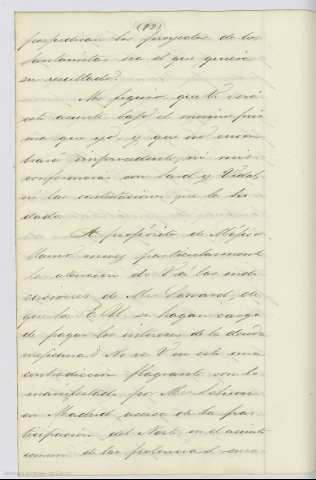 (12)
proyectos de los
sea el que quiera
su resultado.
Me figuro que V. verá
este asunto bajo el mismo pris-
ma que yo, y que no encon-
trará improcedente, ni mis
con Lard y Vidal,
ni las contestaciones que le he
dado.
A propósito de Méjico
llamo muy particularmente
la atencion de V. á las indi-
caciones de Mr. de
que los E.U. se hagan cargo
de pagar los intereses de la deuda
mejicana. No ve V. en esto una
contradiccion flagrante con lo
manifestado por Mr. Schurz
en Madrid acerca de la par-
ticipacion del Norte en el asunto
comun de las potencias